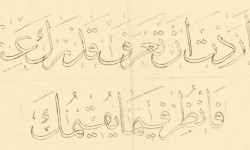 اردت ان تعرف قدرك
فَانْظُرْ فِيمَا يُقِيمُكَ